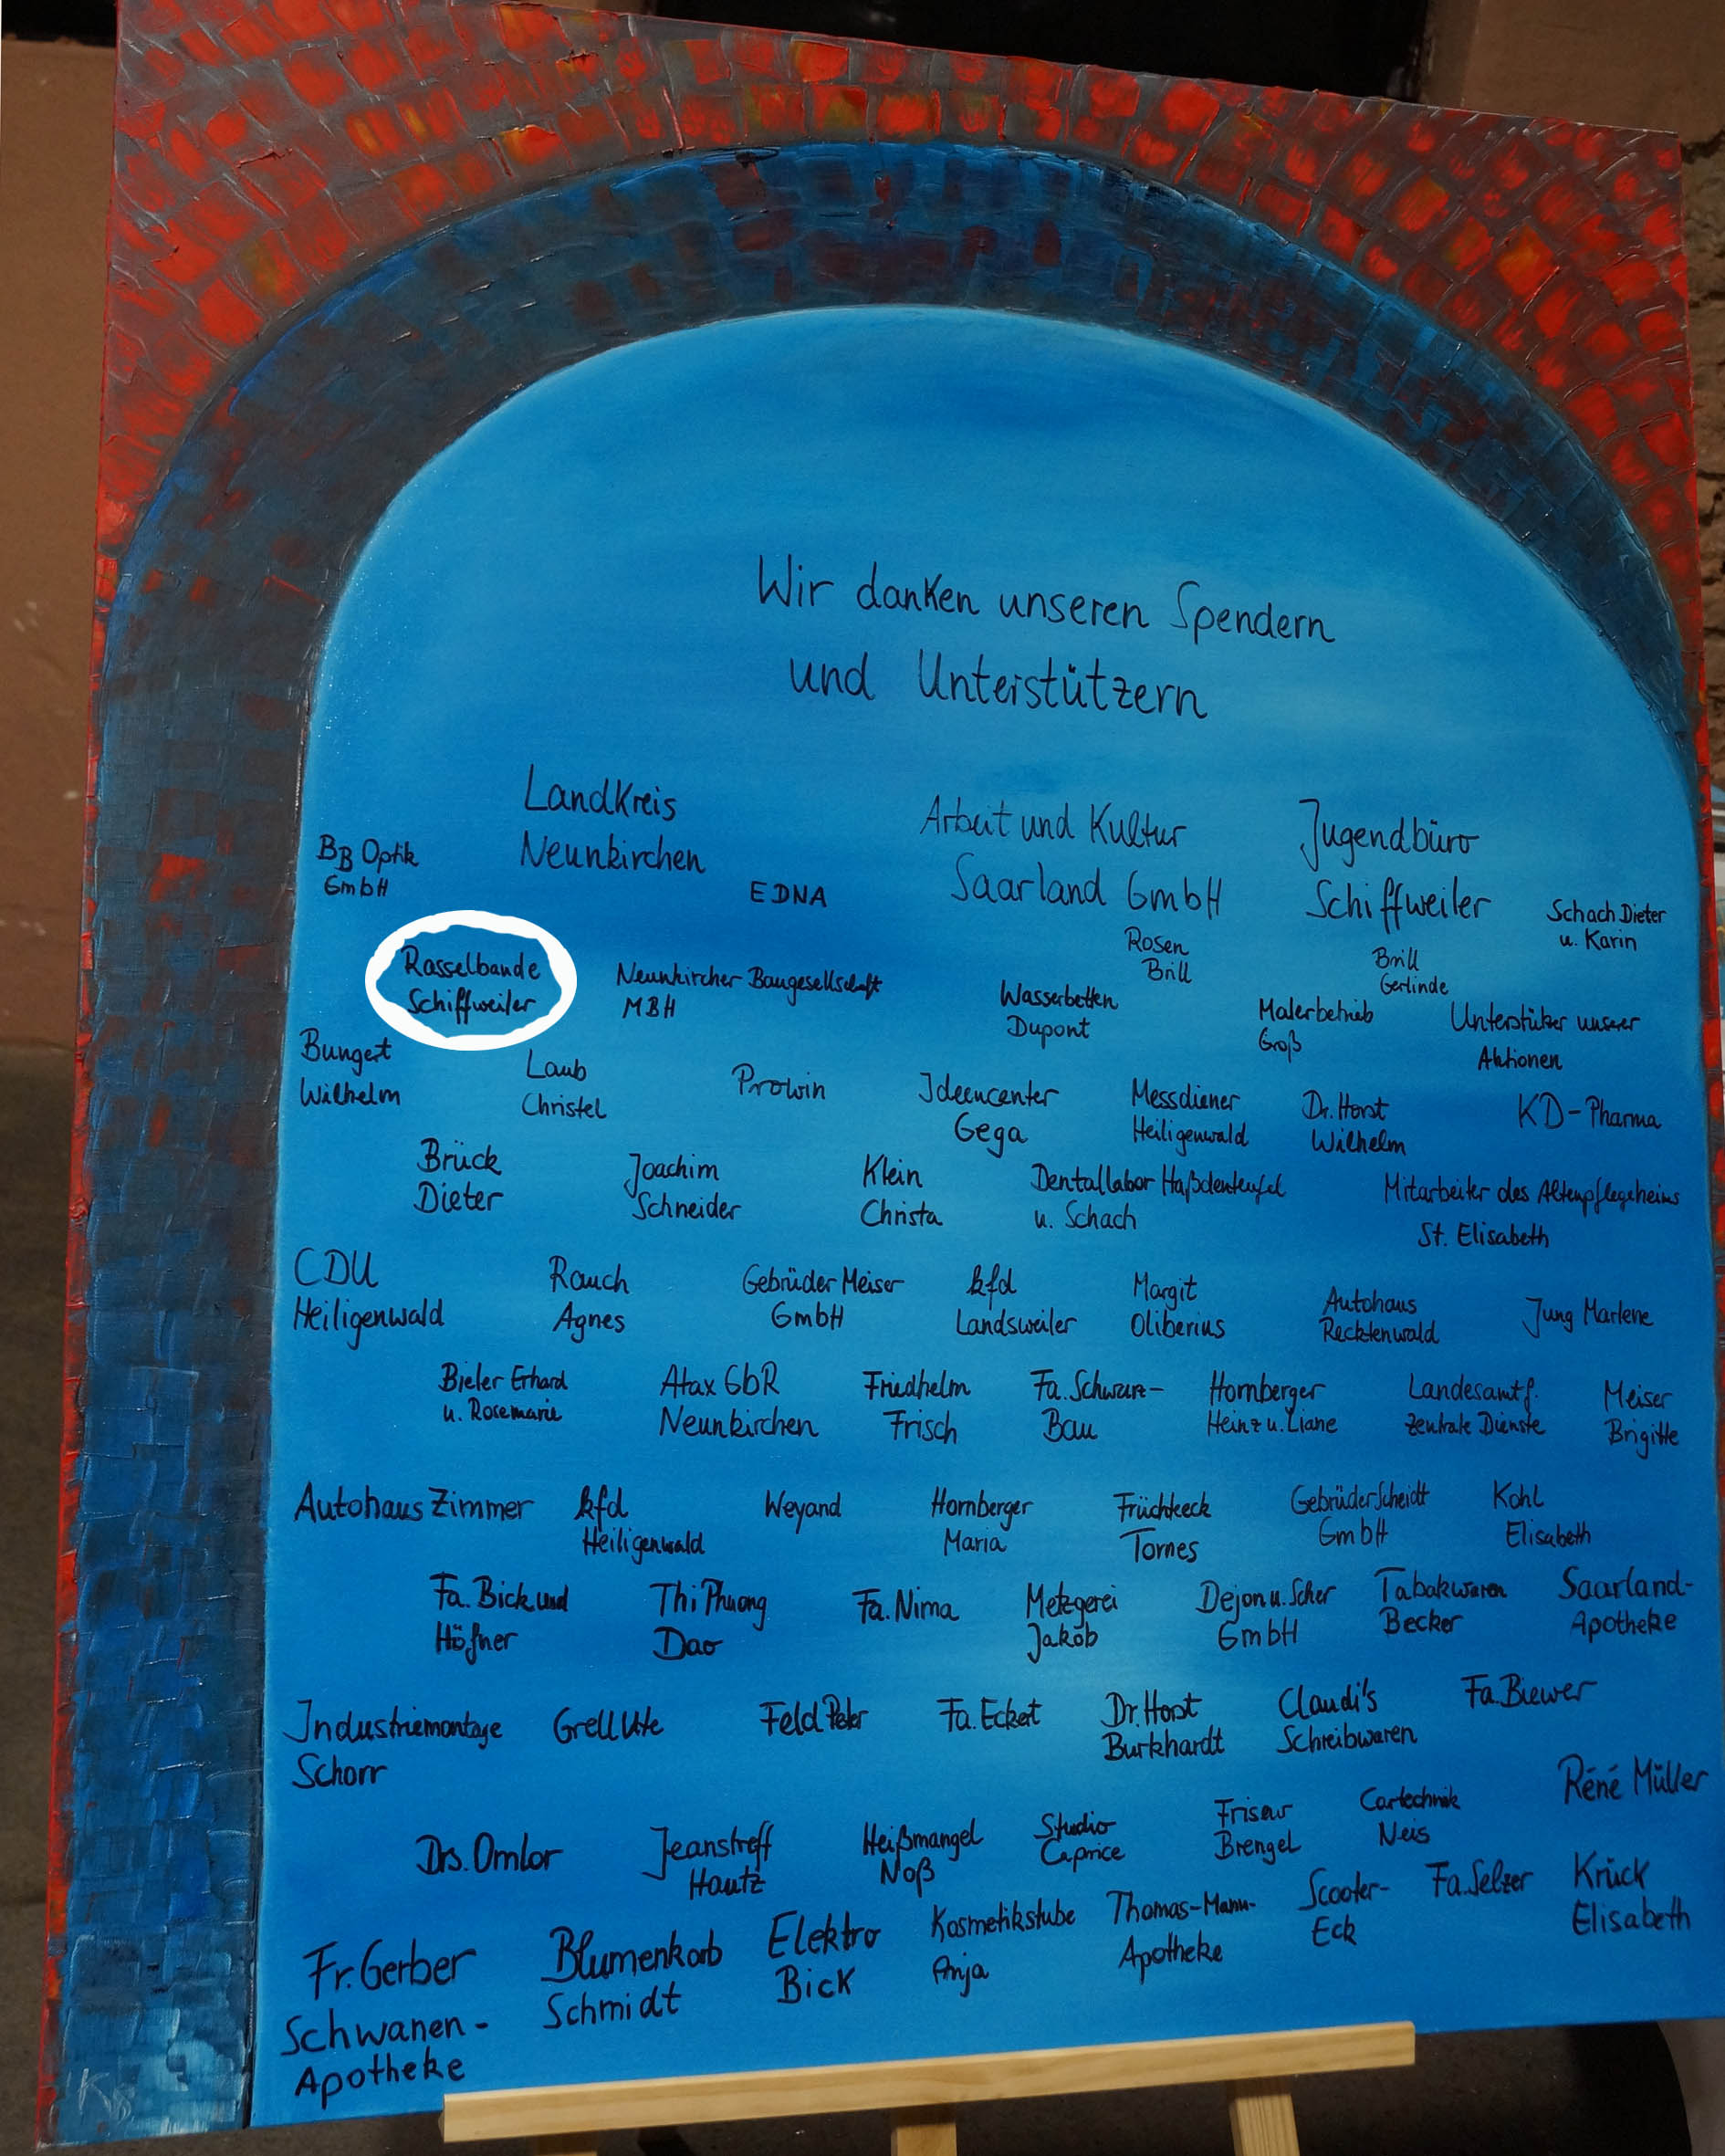 Wir danken unseren Spendern
und Unterstützern
Landkreis
Neunkirchen
Arbeit und Kultur
Saarland GmbH
Jugendbüro
Schiffweiler
BB Optik
GmbH
EDNA
Schach Dieter
u. Karin
Rasselbande
Schiffweiler
Neunkircher Baugesellschaft
MBH
Wasserbetten
Dupont
Rosen
Brill
Brill
Gerlinde
Malerbetrieb
Groß
Unterstützer unserer
Aktionen
Bungert
Wilhelm
Laub
Christel
Prowin
Ideencenter
Gega
Messdiener
Heiligenwald
Dr. Horst
Wilhelm
KD-Pharma
Brück
Dieter
Joachim
Schneider
Klein
Christa
Dentallabor Haßdenteufel
u. Schach
Mitarbeiter des Altenpflegeheims
St. Elisabeth
CDU
Heiligenwald
Rauch
Agnes
Gebrüder Meiser
GmbH
kfd
Landsweiler
Margit
Oliberius
Autohaus
Recktenwald
Jung Marlene
Bieler Erhard
u. Rosemarie
Atax GbR
Neunkirchen
Friedhelm
Frisch
Fa. Schwarz-
Bau
Hornberger
Heinz u. Liane
Landesamt f.
zentrale Dienste
Meiser
Brigitte
Autohaus Zimmer
kfd
Heiligenwald
Weyand
Hornberger
Maria
Früchteeck
Tornes
Gebrüder Scheidt
GmbH
Kohl
Elisabeth
Fa. Bick und
Höfner
Thi Phuong
Dao
Fa. Nima
Metzgerei
Jakob
Dejon u. Scher
GmbH
Tabakwaren
Becker
Saarland-
Apotheke
Industriemontage
Schorr
Grell Ute
Feld Peter
Fa. Eckert
Dr. Horst
Burkhardt
Claudi's
Schreibwaren
Fa. Biewer
Drs. Omlor
Jeanstreff
Hautz
Heißmangel
Noß
Studio
Caprice
Friseur
Brengel
Cartechnik
Neis
Réné Müller
Fr. Gerber
Schwanen-
Apotheke
Blumenkorb
Schmidt
Elektro
Bick
Kosmetikstube
Anja
Thomas-Mann-
Apotheke
Scooter-
Eck
Fa. Selzer
Krück
Elisabeth